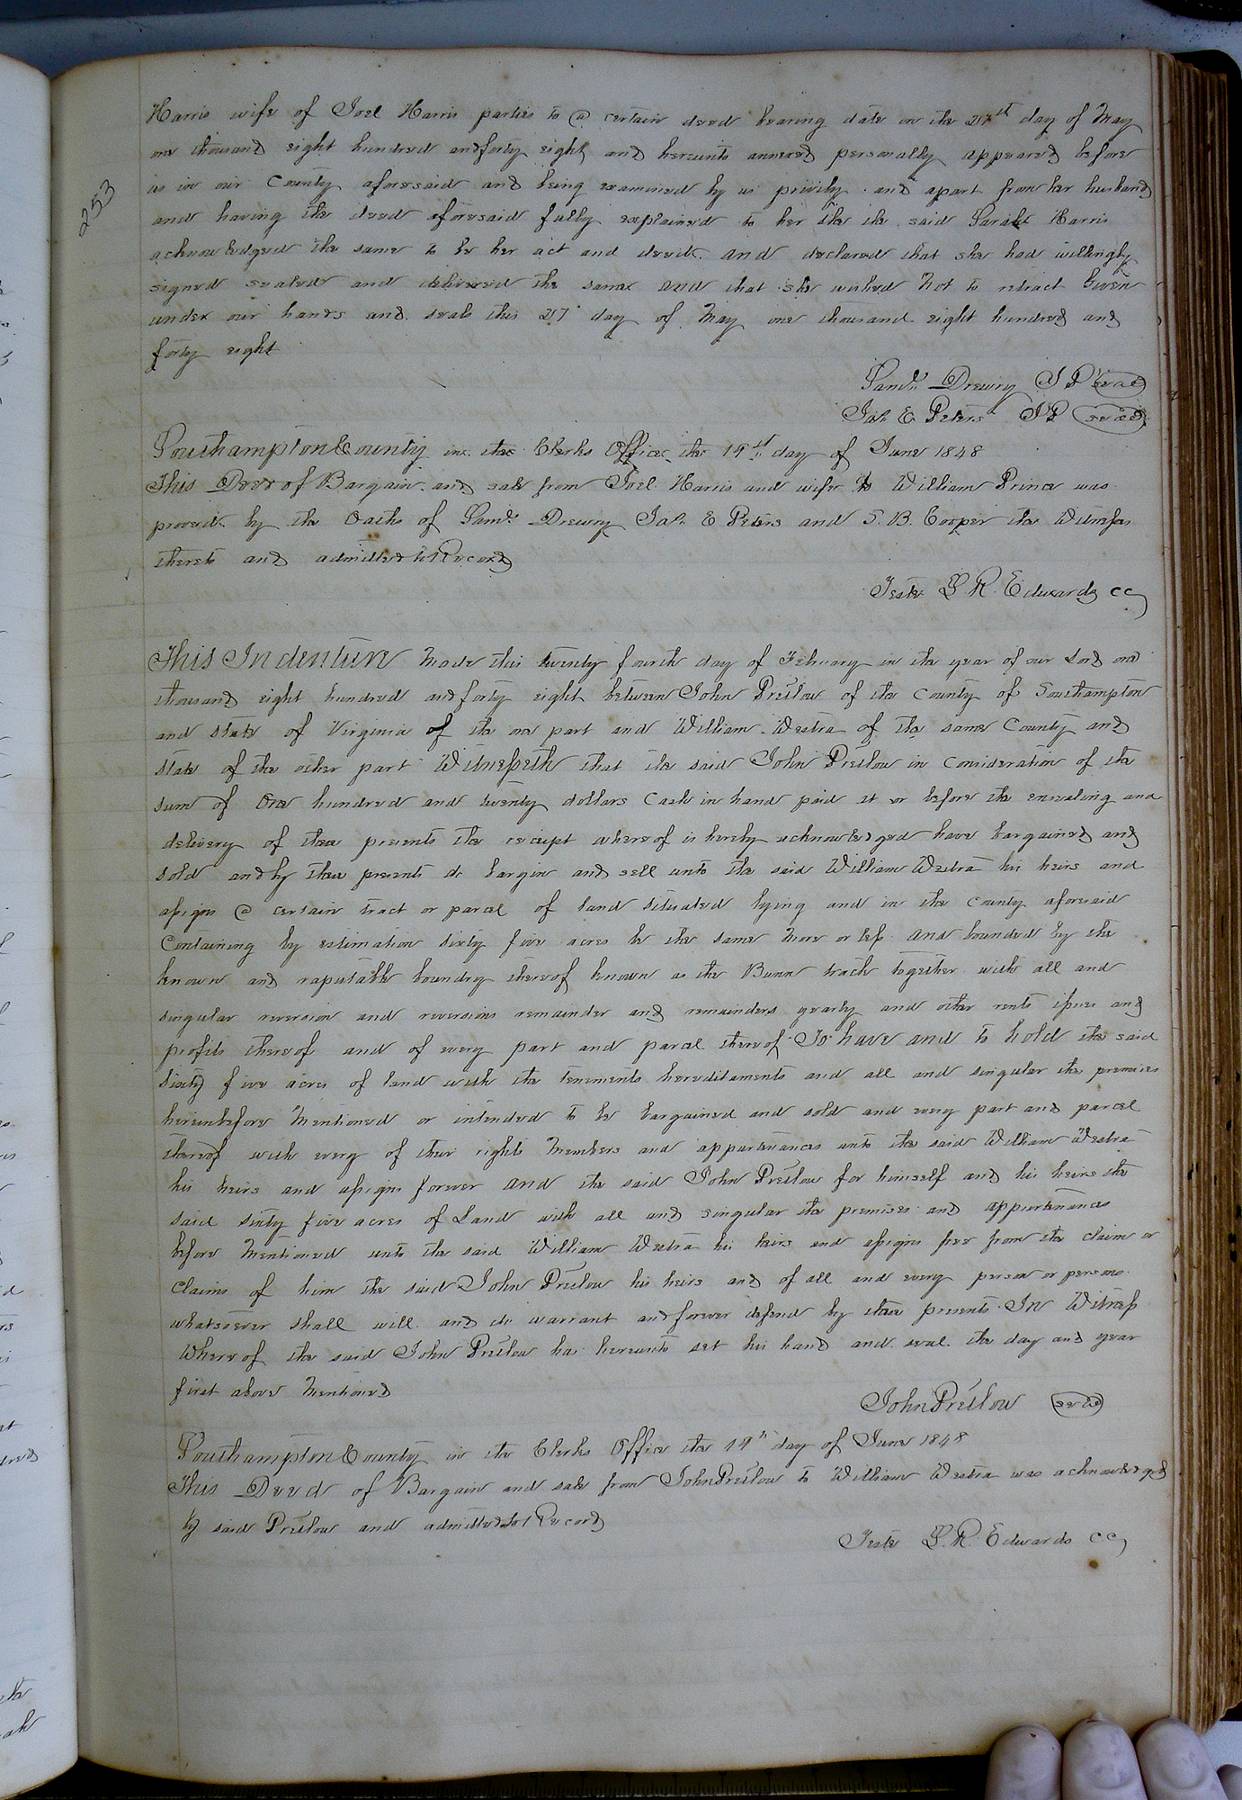 253
Harris wife of Joel Harris parties to a certain deed bearing date on the 27th day of May
one thousand eight hundred and forty eight and hereunto annexed personally appeared before
us in our County aforesaid and being examined by us privily and apart from her husband
and having the deed aforesaid fully explained to her the the said Sarah Harris
acknowledged the same to be her act and deed and declared that she had willingly
signed sealed and delivered the same and that she wished not to retract Given
under our hands and seals this 27 day of May one thousand eight hundred and
forty eight
Saml. Drewry JP seal
Jas. E Peters JP seal
Southampton County in the Clerks Office the 19th day of June 1848
This Deed of Bargain and sale from Joel Harris and wife to William Prince was
proved by the Oaths of Saml. Drewry Jas. E Peters and S. B. Cooper the Witnesses
thereto and admitted to Record
Teste L R Edwards cc
This Indenture Made this twenty fourth day of Febuary in the year of our Lord one
thousand eight hundred and forty eight between John Preslow of the County of Southampton
and state of Virginia of the one part and William Westra of the same County and
state of the other part Witnesseth that the said John Preslow in Consideration of the
sum of One hundred and twenty dollars Cash in hand paid at or before the ensealing and
delivery of these presents the receipt whereof is hereby acknowledged have bargained and
sold and by these presents do bargin and sell unto the said William Westra his heirs and
assigns a certain tract or parcel of land situated lying and in the County aforesaid
Containing by estimation sixty five acres be the same more or less and bounded by the
known and raputable boundry thereof known as the Bunn track together with all and
singular reversion and reversions remainder and remainders yearly and other rents issues and
profits thereof and of every part and parcel thereof To have and to hold the said
sixty five acres of land with the tenements hereditaments and all and singular the premises
hereinbefore mentioned or intended to be bargained and sold and every part and parcel
thereof with every of their rights members and appurtenances unto the said William Westra
his heirs and assigns forever and the said John Preslow for himself and his heirs the
said sixty five acres of Land with all and singular the premises and appurtenances
before mentioned unto the said William Westra his heirs and assigns free from the claim or
claims of him the said John Preslow his heirs and of all and every person or persons
whatsoever shall will and do warrant and forever defend by these presents In Witness
Whereof the said John Preslow has hereunto set his hand and seal the day and year
first above mentioned
John Preslow seal
Southampton County in the Clerks Office the 19th day of June 1848
This Deed of Bargain and sale from John Preslow to William Westra was acknowledged
by said Preslow and admitted to Record
Teste L. R. Edwards cc